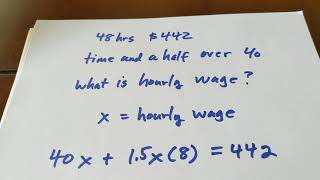 48 hrs $442
time and a half over 40
what is hourly wage?
x = hourly wage
40x + 1.5x(8) = 442